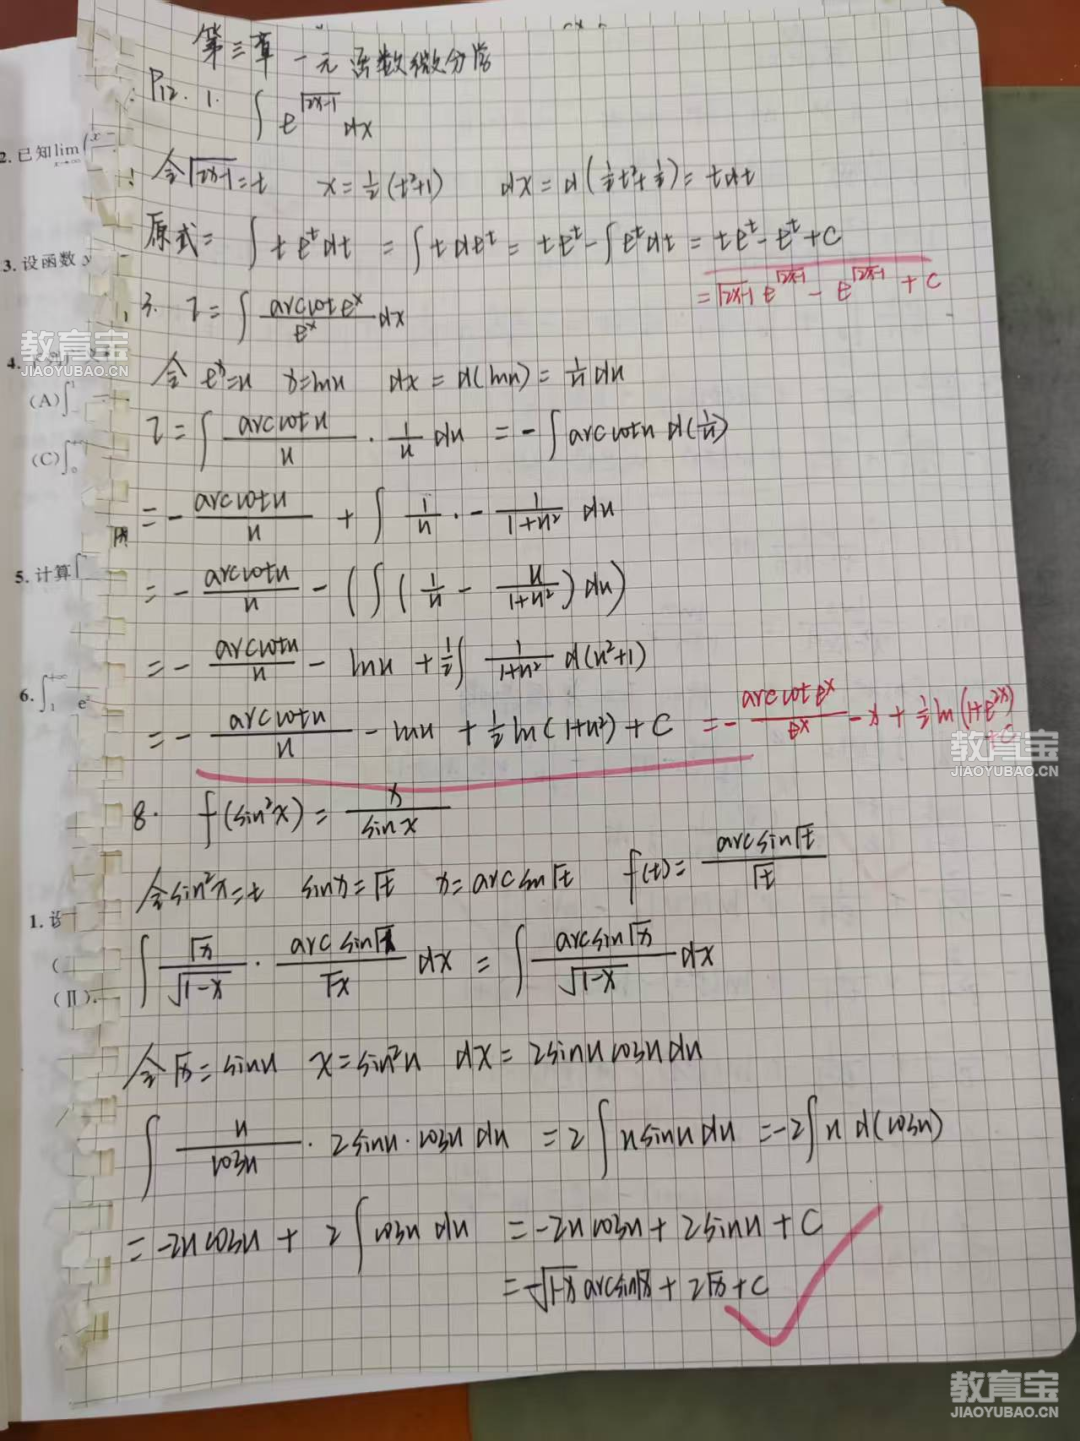 第三章 一元函数微分学
P12. 1. ∫ e^√(2x-1) dx
令√(2x-1)=t x=½(t²+1) dx=d(½t²+½)=tdt
原式= ∫ t e^t dt = ∫ t de^t = te^t - ∫ e^t dt = te^t - e^t + C
= √(2x-1) e^√(2x-1) - e^√(2x-1) + C
3. I = ∫ (arccot e^x)/(e^x) dx
令 e^x=u x=lnu dx=d(lnu)= 1/u du
I = ∫ (arccotu)/u · 1/u du = -∫ arccotu d(1/u)
= -(arccotu)/u + ∫ 1/u · - 1/(1+u²) du
= -(arccotu)/u - (∫ (1/u - u/(1+u²)) du)
= -(arccotu)/u - lnu + ½∫ 1/(1+u²) d(u²+1)
= -(arccotu)/u - lnu + ½ ln(1+u²) + C = -(arccot e^x)/(e^x) - x + ½ ln(1+e^(2x)) + C
8. f(sin²x) = x/(sinx)
令sin²x=t sinx=√t x=arcsin√t f(t)= (arcsin√t)/√t
∫ √x/√(1-x) · (arcsin√x)/√x dx = ∫ (arcsin√x)/√(1-x) dx
令√x=sinu x=sin²u dx=2sinucosudu
∫ u/(cosu) · 2sinu·cosu du = 2∫ usinudu = -2∫ u d(cosu)
= -2ucosu + 2∫ cosu du = -2ucosu + 2sinu + C
= -√(1-x) arcsin√x + 2√x + C
2. 已知lim
3. 设函数 y
4.
(A)∫
(C)∫
5. 计算∫
6. ∫
1. 设
(
(Ⅱ).
教育宝
JIAOYUBAO.CN
教育宝
JIAOYUBAO.CN
教育宝
JIAOYUBAO.CN